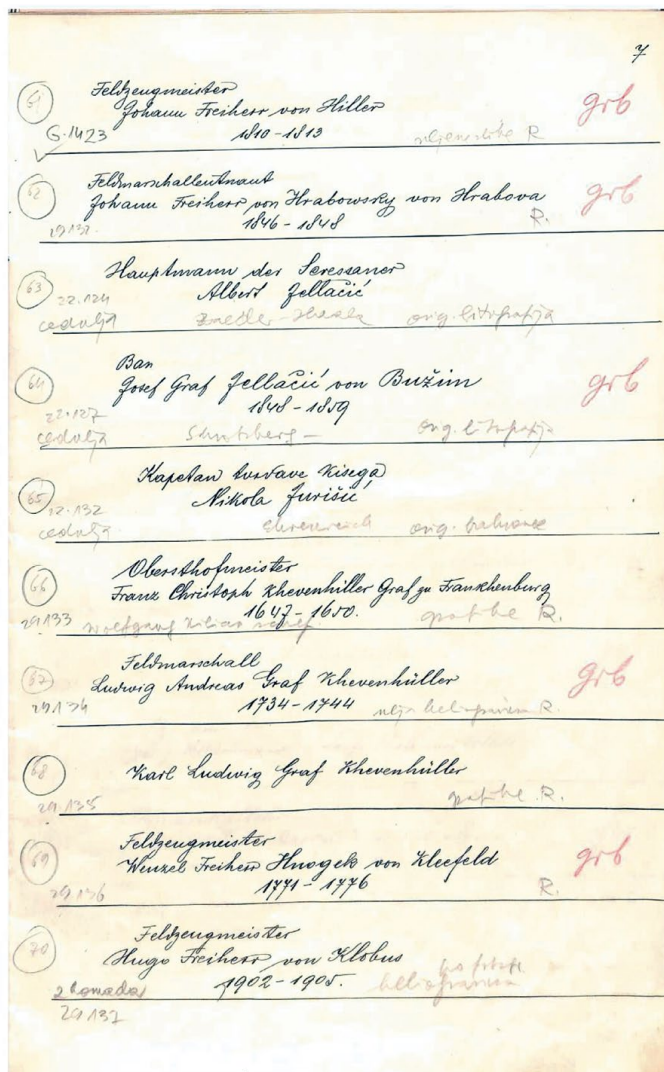 7
61 Feldzeugmeister
Johann Freiherr von Hiller grb
G-1423 1810-1813 R
62 Feldmarschalleutnant
Johann Freiherr von Hrabowsky von Hrabova grb
1846 - 1848 R.
63 Hauptmann der Seressaner
22.124 Albert Jellačić
cedulja orig. litografija
Ban
64 Josef Graf Jellačić von Bužim grb
22.127 1848 - 1859
cedulja orig. litografija
Kapetan tvrđave Kisega
65 Nikola Jurišić
22.132
cedulja orig. bakrorez
Obersthofmeister
66 Franz Christoph Khevenhiller Graf zu Frankhenburg
29.133 1647-1650. R.
Wolfgang Kilian
Feldmarschall
67 Ludwig Andreas Graf Khevenhüller grb
29.134 1734-1744 R.
68 Karl Ludwig Graf Khevenhüller
29.135 R.
Feldzeugmeister
69 Wenzel Freiherr von Kleefeld grb
29.136 1771 - 1776 R.
70 Feldzeugmeister
Hugo Freiherr von Klobus
1902 - 1905.
2 komada heliogravura
29.137